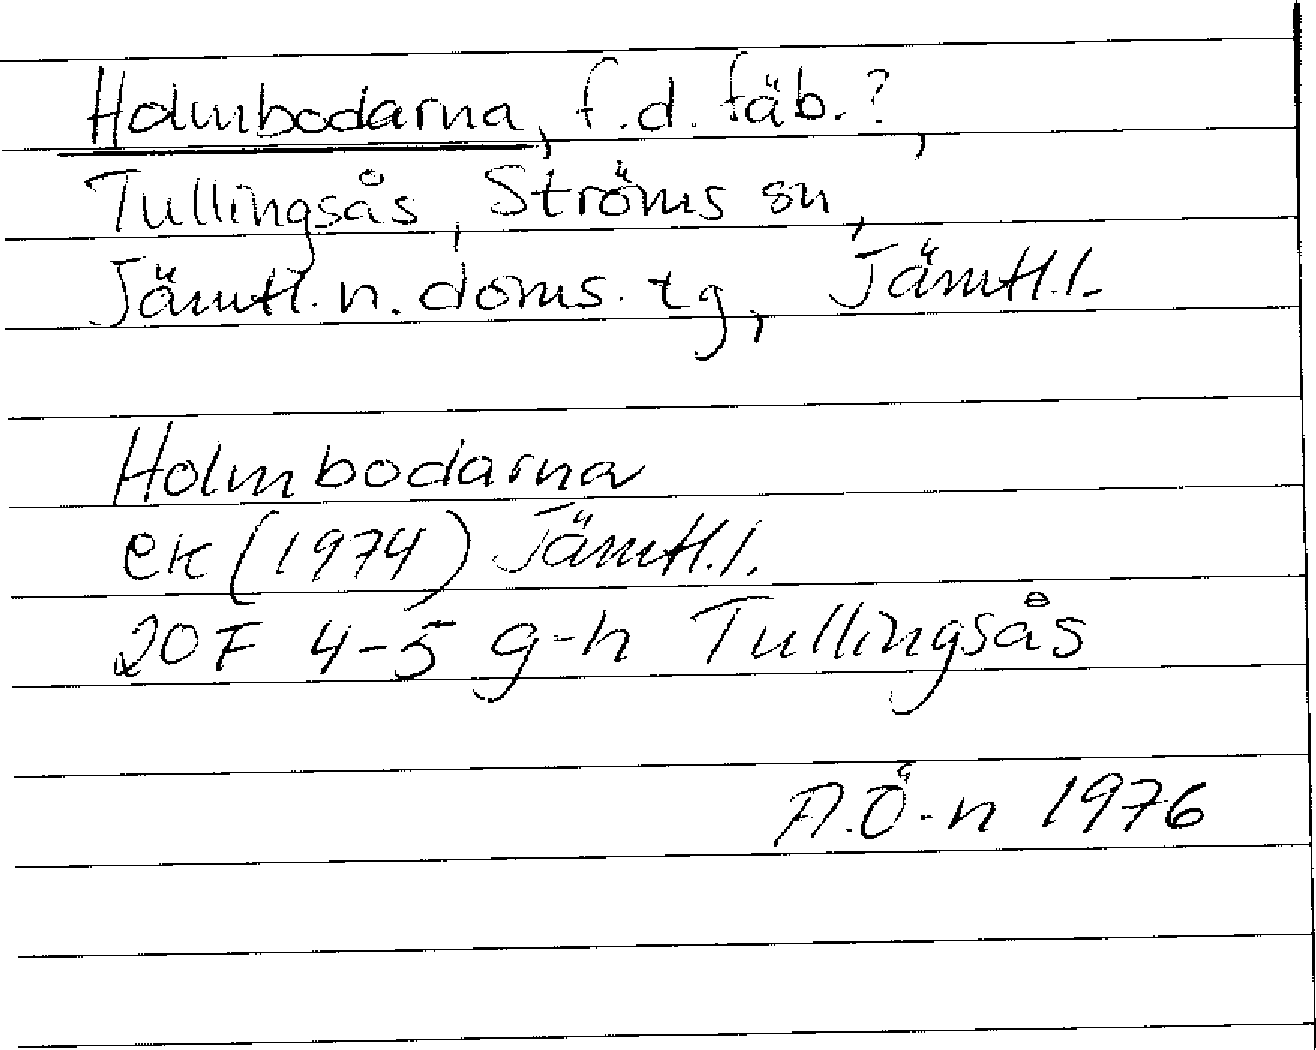 Holmbodarna, f.d. fäb.?,
Tullingsås, Ströms sn,
Jämtl. n. doms. tg, Jämtl.l.
Holmbodarna
ek (1974) Jämtl.l.
20F 4-5 g-h Tullingsås
A.Ö-n 1976